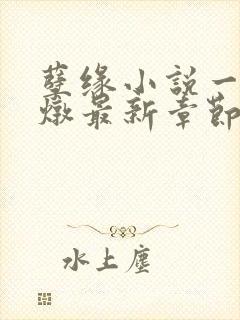 孽缘小説一
燉最新章節
水上塵